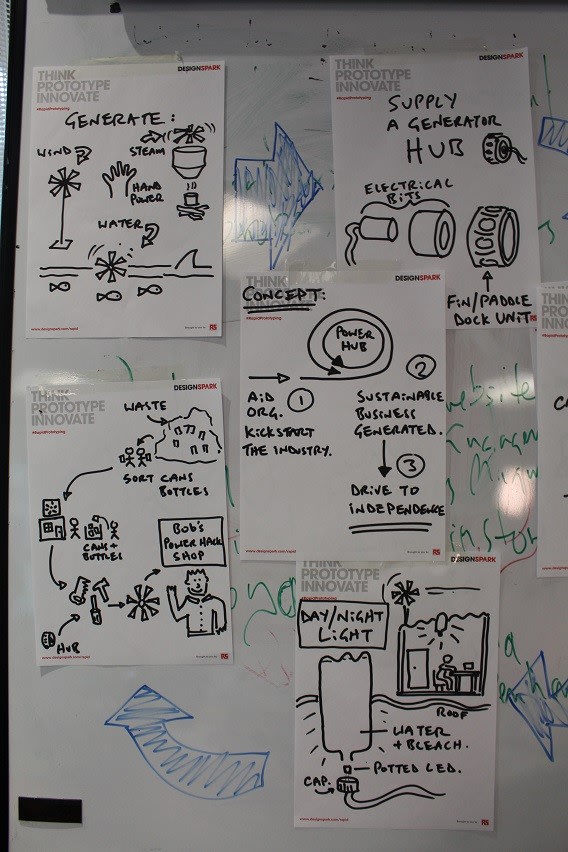 THINK
PROTOTYPE
INNOVATE
#RapidPrototyping
DESIGNSPARK
GENERATE:
WIND
STEAM
HAND
POWER
WATER
www.designspark.com/rapid
RS
THINK
PROTOTYPE
INNOVATE
#RapidPrototyping
DESIGNSPARK
SUPPLY
A GENERATOR
HUB
ELECTRICAL
BITS
FIN/PADDLE
DOCK UNIT
THINK
DESIGNSPARK
CONCEPT:
#RapidPrototyping
POWER
HUB
AID
ORG. 1
KICKSTART
THE INDUSTRY.
2
SUSTAINABLE
BUSINESS
GENERATED.
3
DRIVE TO
INDEPENDENCE
www.designspark.com/rapid
RS
THINK
PROTOTYPE
INNOVATE
#RapidPrototyping
DESIGNSPARK
WASTE
SORT CANS
BOTTLES
CANS +
BOTTLES
HUB
BOB'S
POWER HACK
SHOP
www.designspark.com/rapid
RS
THINK
PROTOTYPE
INNOVATE
DESIGNSPARK
DAY/NIGHT
LIGHT
ROOF
WATER
+ BLEACH.
POTTED LED.
CAP.
www.designspark.com/rapid
RS
website